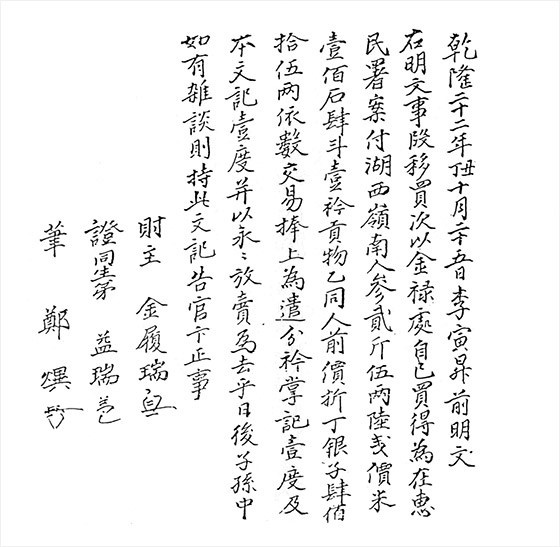 乾隆二十二年丁丑十月二十五日李寅昇前明文
右明文事段移買次以金祿處自己買得為在惠
民署案付湖西嶺南人參貳斤伍兩陸戔價米
壹佰石肆斗壹衿貢物乙同人前價折丁銀子肆佰
拾伍兩依數交易捧上為遣分衿掌記壹度及
本文記壹度幷以永〻放賣為去乎日後子孫中
如有雜談則持此文記告官卞正事
財主 金履瑞
證同生弟 益瑞
筆 鄭